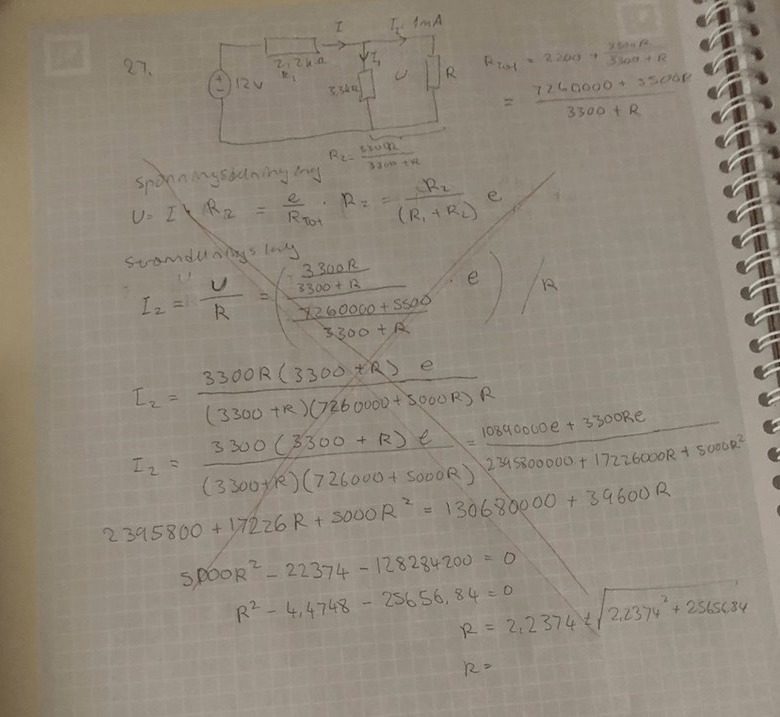 27.
I
I₂ 1mA
2,2kΩ
R₁
I₁
12V
3,3kΩ
U
R
R_Tot = 2200 + 3300R / 3300 + R
= 7260000 + 5500R / 3300 + R
R₂ = 3300R / 3300 + R
Spänningsdelning lag
U = I · R₂ = e / R_Tot · R₂ = R₂ / (R₁ + R₂) e
Strömdelnings lag
I₂ = U / R = ( 3300R / 3300 + R / 7260000 + 5500 / 3300 + R · e ) / R
I₂ = 3300R (3300 + R) e / (3300 + R)(7260000 + 5000R) R
I₂ = 3300 (3300 + R) e / (3300 + R)(726000 + 5000R) = 10890000e + 3300Re / 2395800000 + 17226000R + 5000R²
2395800 + 17226R + 5000R² = 130680000 + 39600R
5000R² - 22374 - 128284200 = 0
R² - 4,4748 - 25656,84 = 0
R = 2,2374 ± √2,2374² + 25656,84
R =